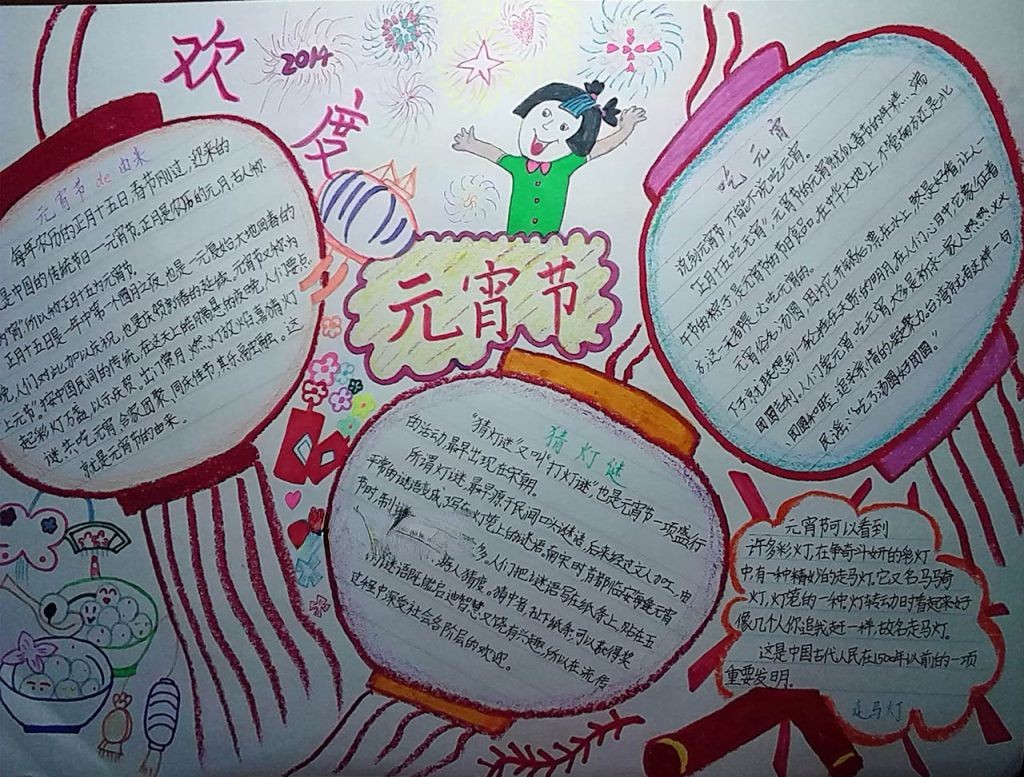 欢
度
2014
元宵节
元宵节 de 由来
每年农历的正月十五日,春节刚过,迎来的
是中国的传统节日--元宵节.正月是农历的元月,古人称
"宵"所以称正月十五为元宵节.
正月十五日是一年中第一个月圆之夜,也是一元复始大地回春的
晚,人们对此加以庆祝,也是庆贺新春的延续.元宵节又称为
上元节"按中国民间的传统,在这天上皓月高悬的夜晚,人们要点
起彩灯万盏,以示庆贺.出门赏月.燃灯放焰喜猜灯
谜.共吃元宵.合家团聚.同庆佳节,其乐融融.这
就是元宵节的由来.
吃元宵
说到元宵节,不能不说吃元宵.
"正月十五吃元宵",元宵节的元宵就似春节的年糕.端
午节的粽子,是元宵节的节日食品.在中华大地上,不管南方还是北
方,这一天都是必吃元宵的.
元宵俗名:汤圆.因灯汇开锅后票在水上,煞是好看,让人一
下子就联想到一轮挂在天际的明月,在人们心目中,它象征着
团圆吉利.人们爱元宵.吃元宵.大多是祈求一家人
团圆和睦.
民谣:"吃了汤圆好团圆."
猜灯谜
"猜灯谜"又叫"打灯谜"也是元宵节一项盛行
由活动.最早出现在宋朝.
所谓灯谜.最早源于民间口头谜语,后来经过文人加工,由
平常由谜语变成了写在灯笼上的谜语.南宋时首都临安每逢元宵
节时,制迷
多.人们把谜语写在纸条上,贴在五
,供人猜度.猜中者,扯下纸条,可以获得奖
谜语既能启迪智慧又饶有兴趣,所以在流传
过程中深受社会各阶层的欢迎.
元宵节可以看到
许多彩灯,在争奇斗妍的彩灯
中,有一种精妙的走马灯.它又名马骑
灯,灯笼的一种.灯转动时看起来好
像几个人你追我赶一样,故名走马灯.
这是中国古代人民在1500年以前的一项
重要发明.
走马灯